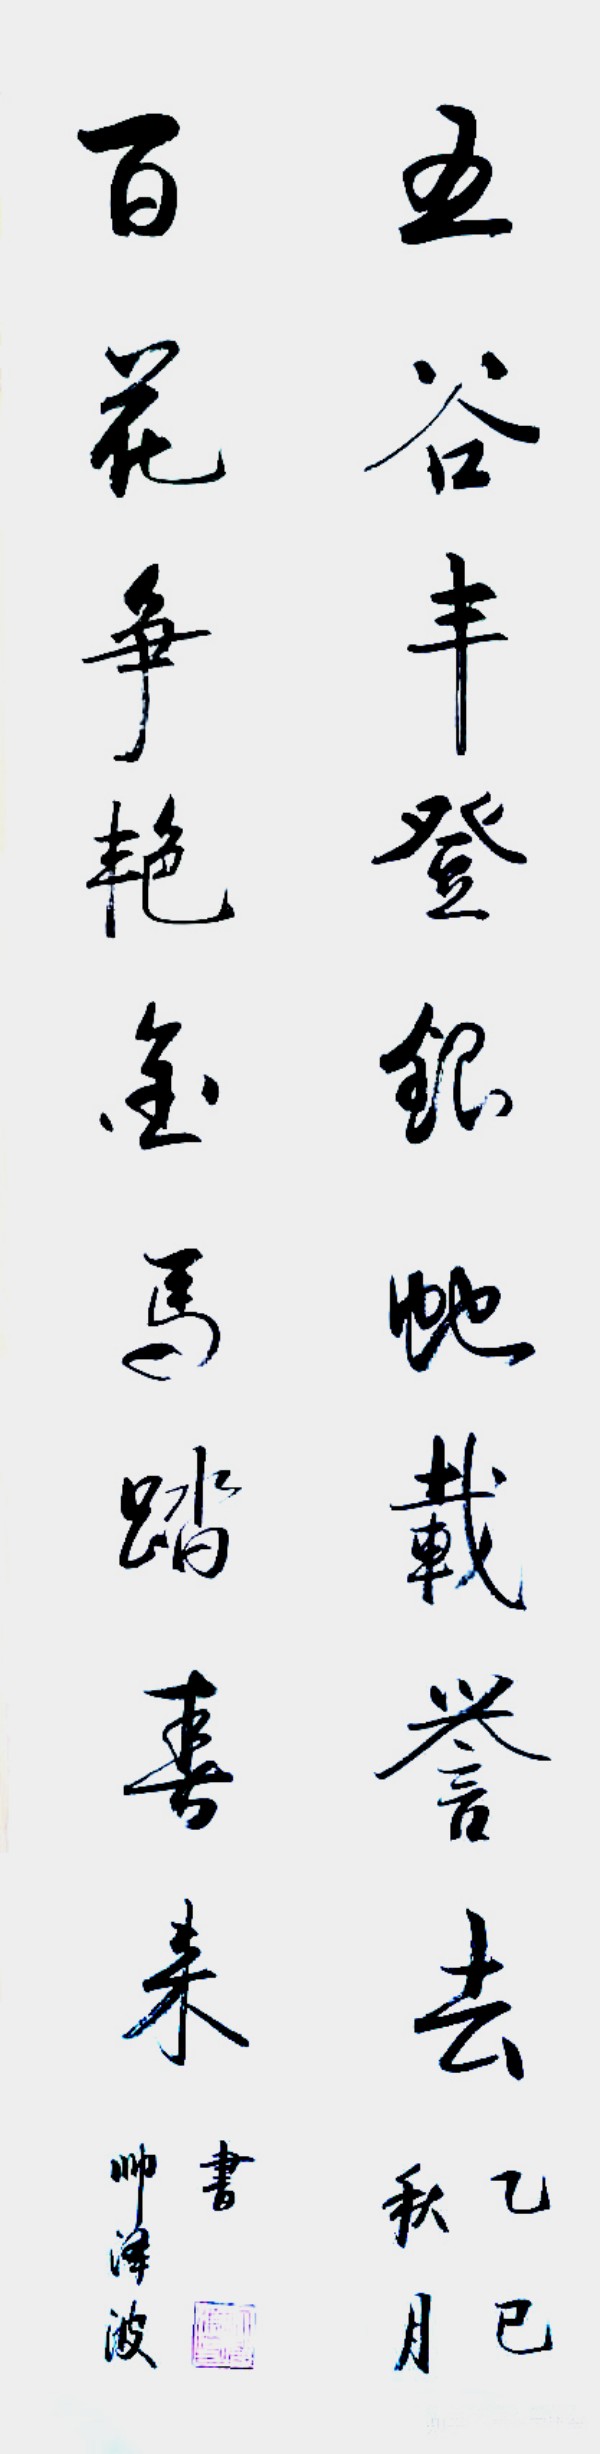 五谷丰登銀虵載誉去
乙巳
秋月
百花争艳金馬踏春来
書
帅泽波